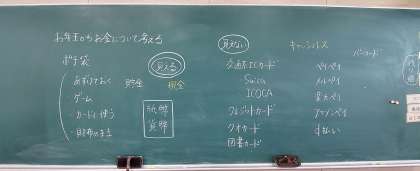 お年玉からお金について考える
ポチ袋
見える
・あずけておく 貯金 現金
・ゲーム
・カードに使う
・財布のまま
紙幣
貨幣
見えない
交通系ICカード
Suica
ICOCA
クレジットカード
クオカード
図書カード
キャッシュレス
ペイペイ
メルペイ
楽天ペイ
アマゾンペイ
d払い
バーコード